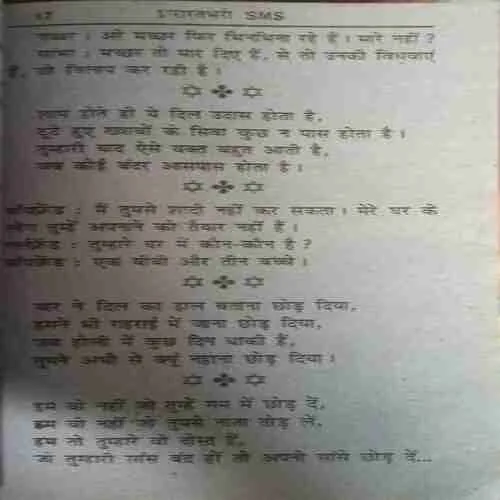 शरारतभरी SMS
बच्चा : ओ मच्छर फिर भिनभिना रहे हैं। मारे नहीं?
मच्छर तो मार दिए हैं, ये तो उनकी विधवाएं
हैं, जो विलाप कर रही हैं।
शाम होते ही ये दिल उदास होता है,
टूटे हुए ख्वाबों के सिवा कुछ न पास होता है।
तुम्हारी याद ऐसे वक्त बहुत आती है,
जब कोई बंदर आसपास होता है।
बॉयफ्रेंड : मैं तुमसे शादी नहीं कर सकता। मेरे घर के
लोग तुम्हें अपनाने को तैयार नहीं हैं।
गर्लफ्रेंड : तुम्हारे घर में कौन-कौन है?
बॉयफ्रेंड : एक बीवी और तीन बच्चे।
ने दिल का हाल बताना छोड़ दिया,
हमने भी गहराई में जाना छोड़ दिया,
होली में कुछ दिन बाकी हैं,
तुमने अभी से क्यूं नहाना छोड़ दिया।
हम वो नहीं जो तुम्हें गम में छोड़ दें,
हम वो नहीं जो तुमसे नाता तोड़ लें,
हम तो तुम्हारे वो दोस्त हैं,
जो तुम्हारी सांस बंद हो तो अपनी सांसें छोड़ दें...